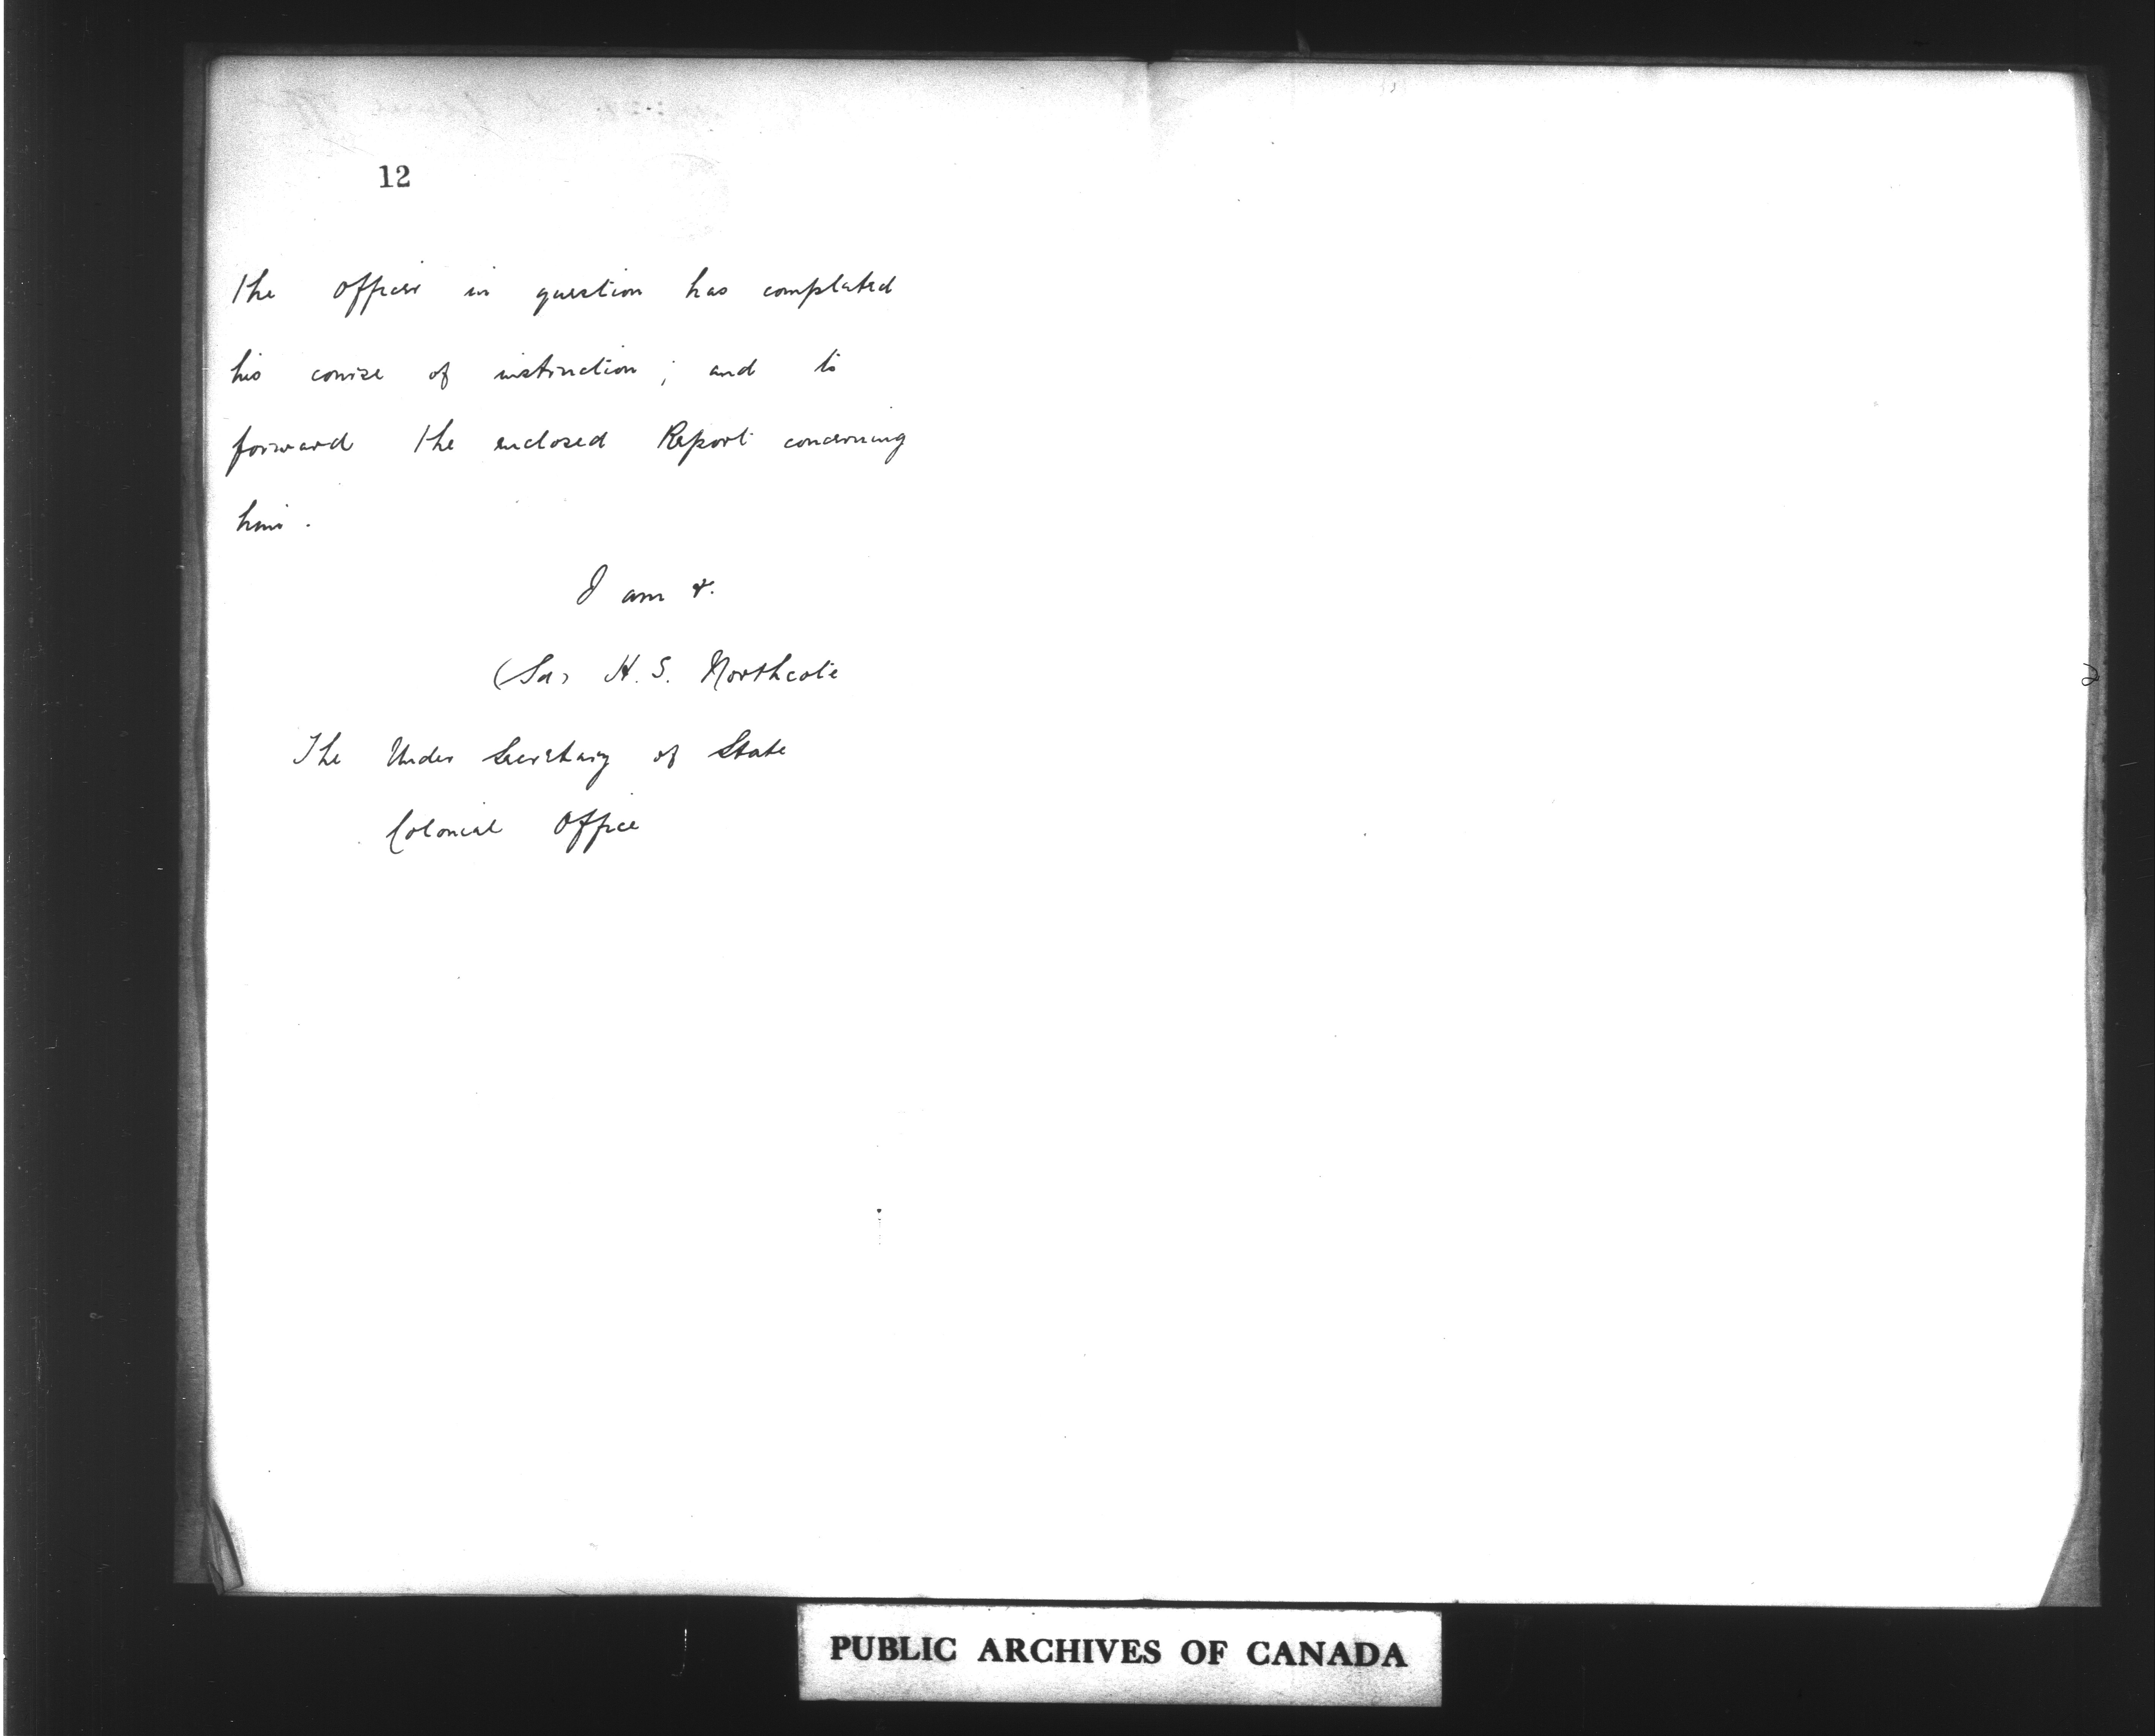 12
the officer in question has completed
his course of instruction; and to
forward the enclosed Report concerning
him.
I am &.
(Sd) H. S. Northcote
The Under Secretary of State
Colonial Office
PUBLIC ARCHIVES OF CANADA